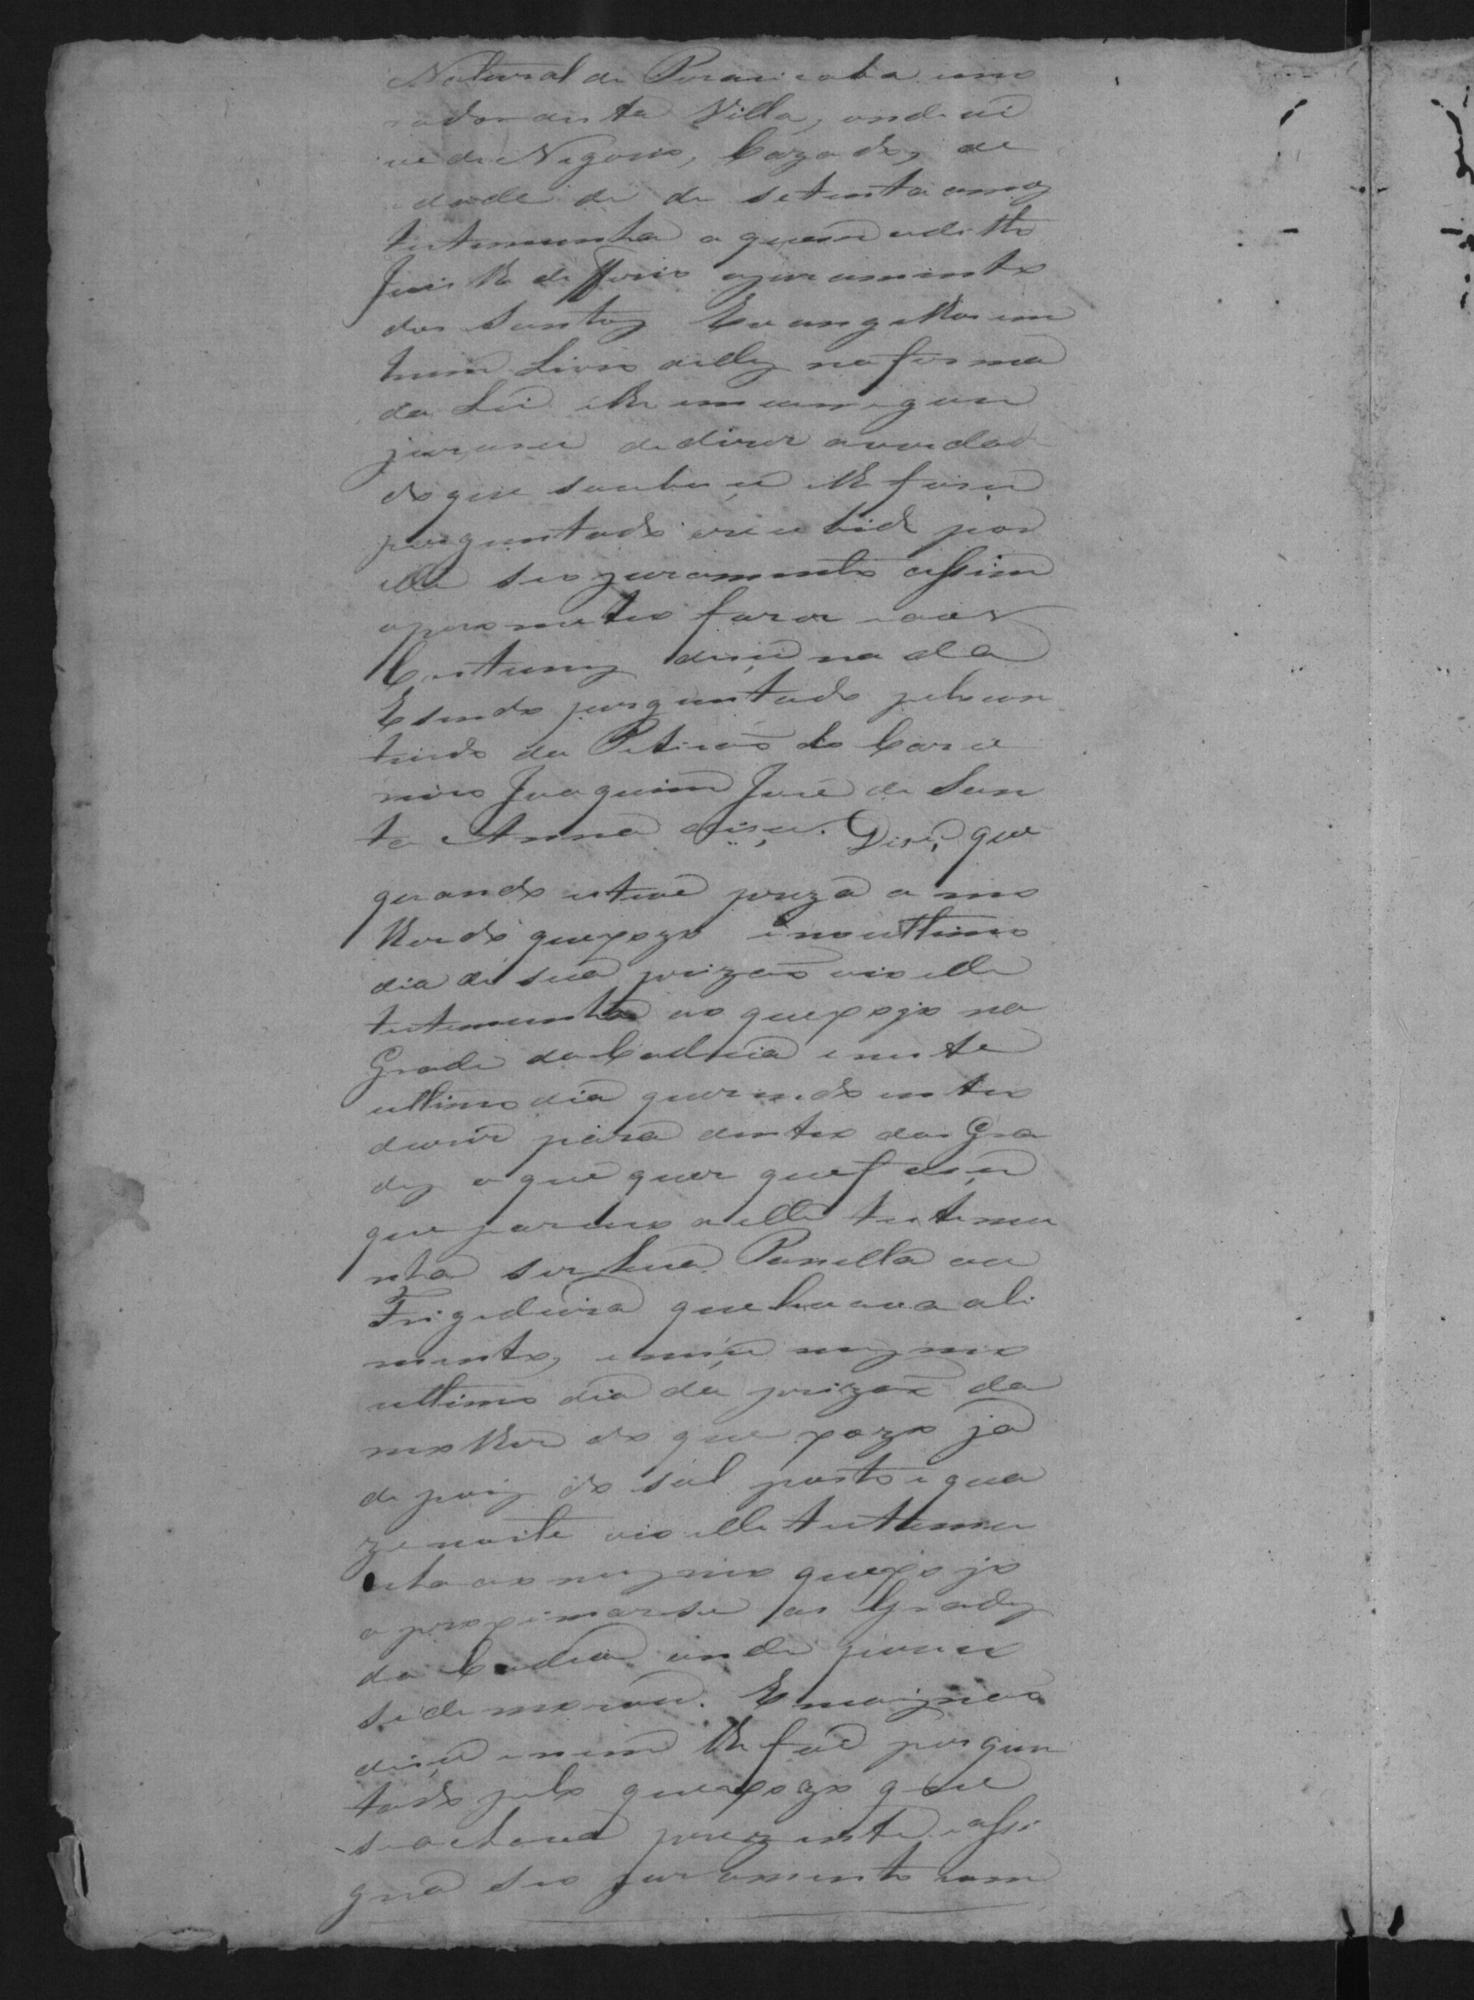 Natural de Piracicaba mo
rador desta Villa, onde vi
ve de Negocio, Cazado, de
idade de de setenta annos
testemunha a quem o ditto
Juis lhe deferio o juramento
dos Santos Evangelhos em
hum Livro delles na forma
da Lei e lhe encarregou
jurasse de dizer a verdade
do que soubesse e lhe fosse
perguntado e recebido por
elle seo juramento assim
o prometeo fazer e aos
Custumes disse nada
E sendo perguntado pelo con
theudo da Petição do Carce
reiro Joaquim José de San
ta Anna disse. Disse, que
quando esteve preza a mo
lher do queixozo e no ultimo
dia de sua prizão vio elle
testemunha ao queixozo na
Grade da Cadeia e neste
ultimo dia querendo intro
duzir para dentro das Gra
des o que quer que fosse
que pareceo a elle testemu
nha ser hua Panella ou
Frigideira que levava ali
mento, e nesse mesmo
ultimo dia da prizão da
molher do queixozo já
depois do sol posto e qua
ze noite vio elle testemu
nha ao mesmo queixozo
aproximarse as Grades
da Cadea onde pouco
se demorou. E mais não
disse e nem lhe foi pergun
tado pelo queixozo que
se achava prezente e assi
gna seo juramento com